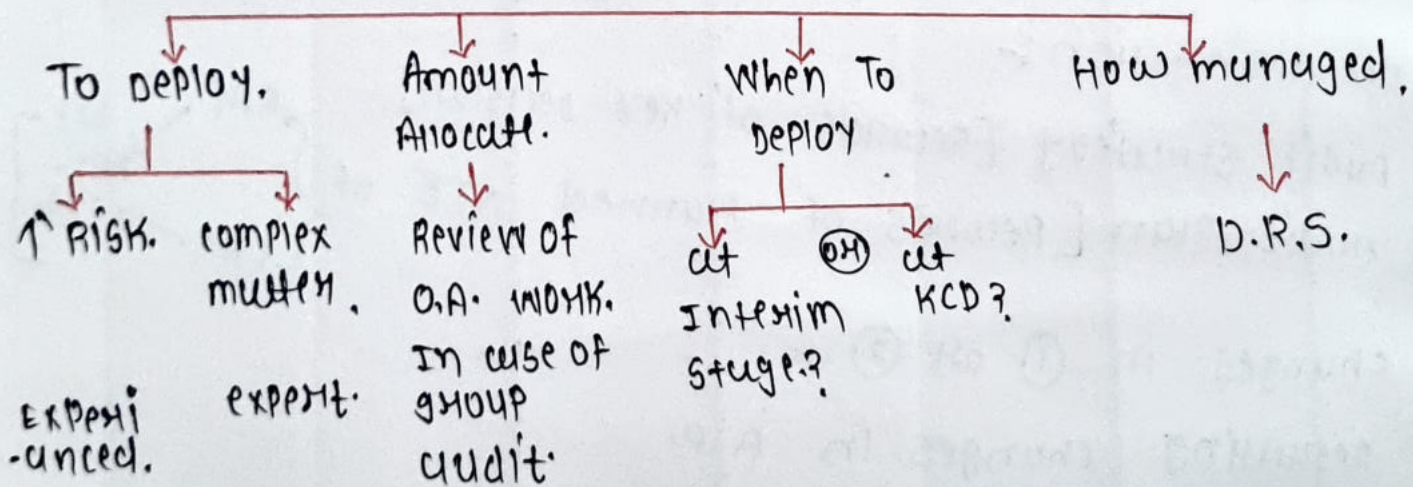 To Deploy.
↑ Risk.
Experi
-anced.
complex
matter.
expert.
Amount
Allocate.
Review of
O.A. work.
In case of
group
audit.
When To
Deploy
at
Interim
stage?
OR
at
KCD?
How managed.
D.R.S.